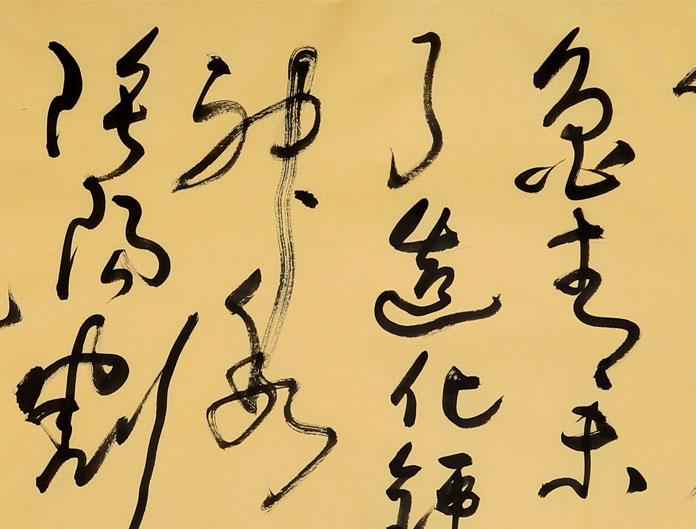 魯青未
了造化鍾
神秀
陰陽割